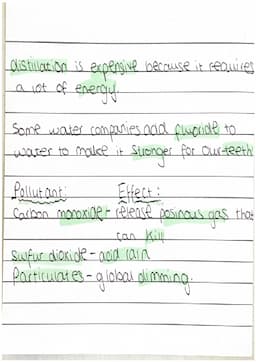 distillation is expensive because it requires
a lot of energy.
Some water companies add fluoride to
water to make it stronger for our teeth
Pollutant: Effect:
Carbon monoxide - release posinous gas that
can kill
Sulfur dioxide - acid rain
Particulates - global dimming.